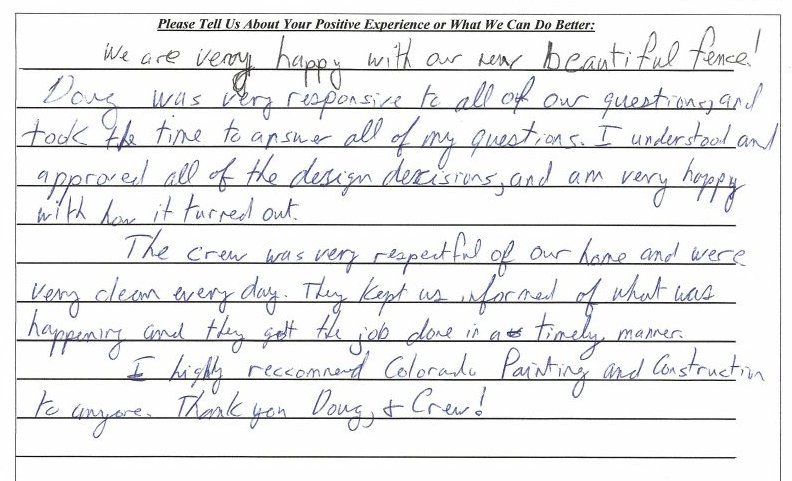 Please Tell Us About Your Positive Experience or What We Can Do Better:
We are very happy with our new beautiful fence!
Doug was very responsive to all of our questions, and
took the time to answer all of my questions. I understood and
approved all of the design descisions, and am very happy
with how it turned out.
The crew was very respectful of our home and were
very clean every day. They kept us informed of what was
happening and they got the job done in a timely manner.
I highly reccommend Colorado Painting and Construction
to anyone. Thank you Doug, & Crew!